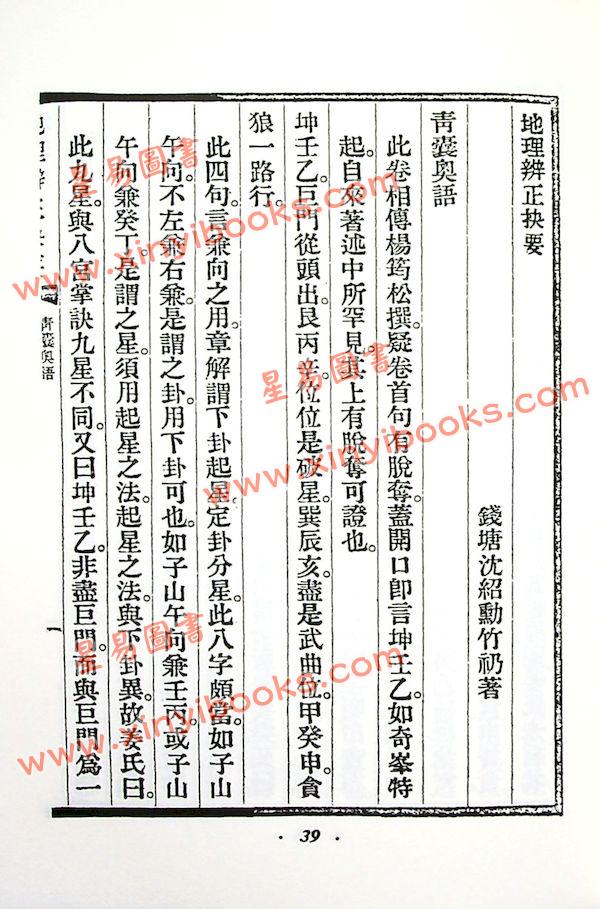 地理辨正抉要
錢塘沈紹勳竹礽著
青囊奧語
此卷相傳楊筠松撰。疑卷首句有脫奪。蓋開口即言坤壬乙。如奇峯特
起。自來著述中所罕見。其上有脫奪可證也。
坤壬乙。巨門從頭出。艮丙辛。位位是破星。巽辰亥。盡是武曲位。甲癸申。貪
狼一路行。
此四句。言兼向之用。章解謂下卦起星。定卦分星。此八字頗當。如子山
午向。不左兼右兼。是謂之卦。用下卦可也。如子山午向兼壬丙。或子山
午向兼癸丁。是謂之星。須用起星之法。起星之法。與下卦異。故姜氏曰。
此九星。與八宮掌訣九星不同。又曰坤壬乙。非盡巨門。而與巨門為一
青囊奧语
一
星易圖書
www.xinyibooks.com
星易圖書
www.xinyibooks.com
星易圖書
www.xinyibooks.com
· 39 ·